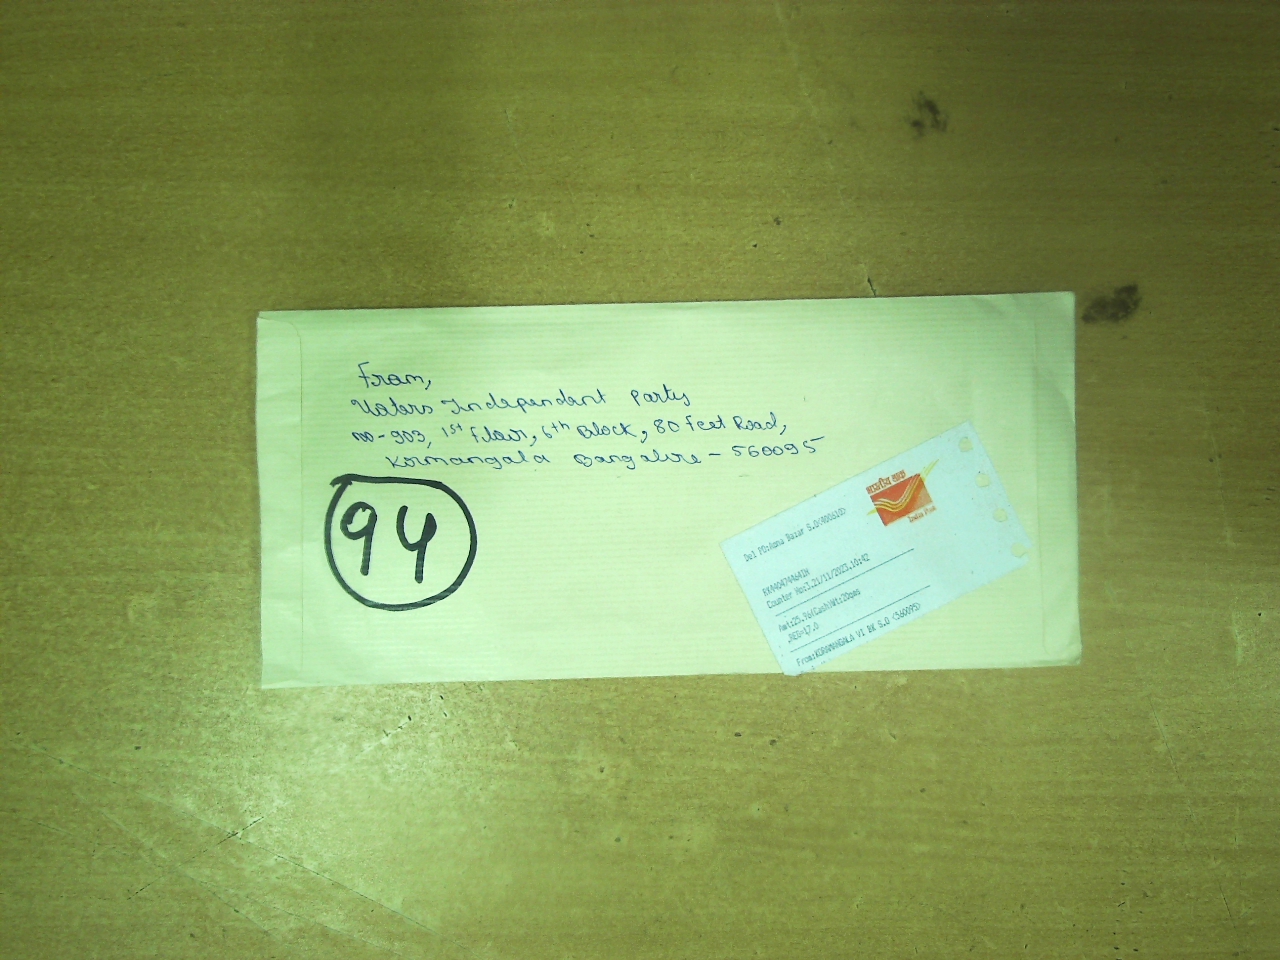 From,
Voters Independent Party
no-903, 1st Floor, 6th Block, 80 feet Road,
Kormangala Bangalore - 560095
94
भारतीय डाक
India Post
Del PO: Bazar S.O(400610)
Counter No:3,21/11/2023,10:42
Amt:25.96(Cash)Wt:20gms
,REG=17.0
From:KORAMANGALA VI BK S.O (560095)